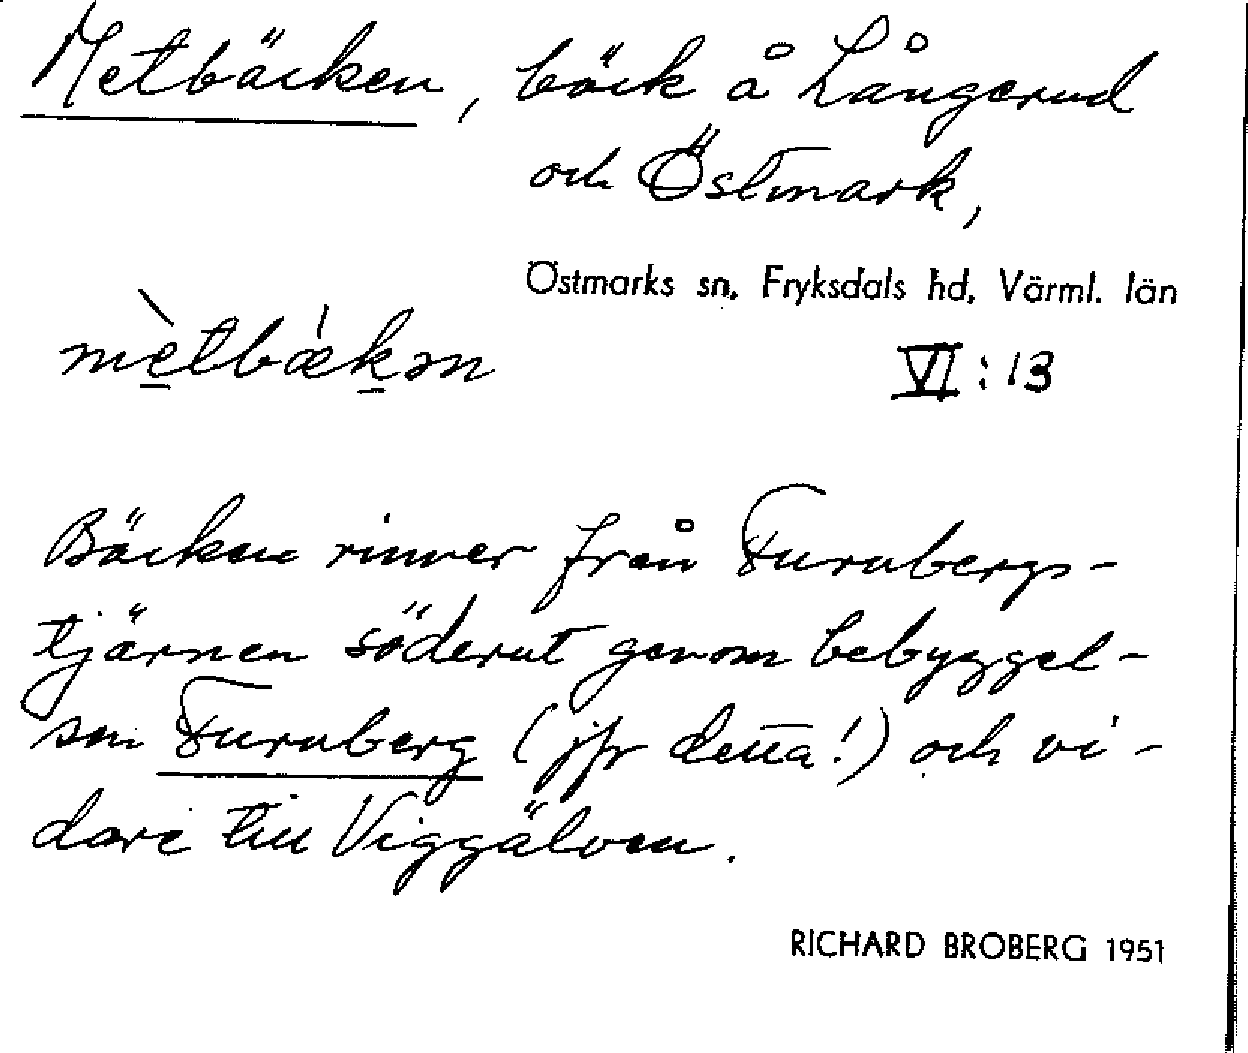 Metbäcken, bäck å Långerud
och Östmark,
Östmarks sn, Fryksdals hd, Värml. län
mètbǽkən VI:13
Bäcken rinner från Furubergs-
tjärnen söderut genom bebyggel-
sen Furuberg (jfr detta!) och vi-
dare till Viggälven.
RICHARD BROBERG 1951